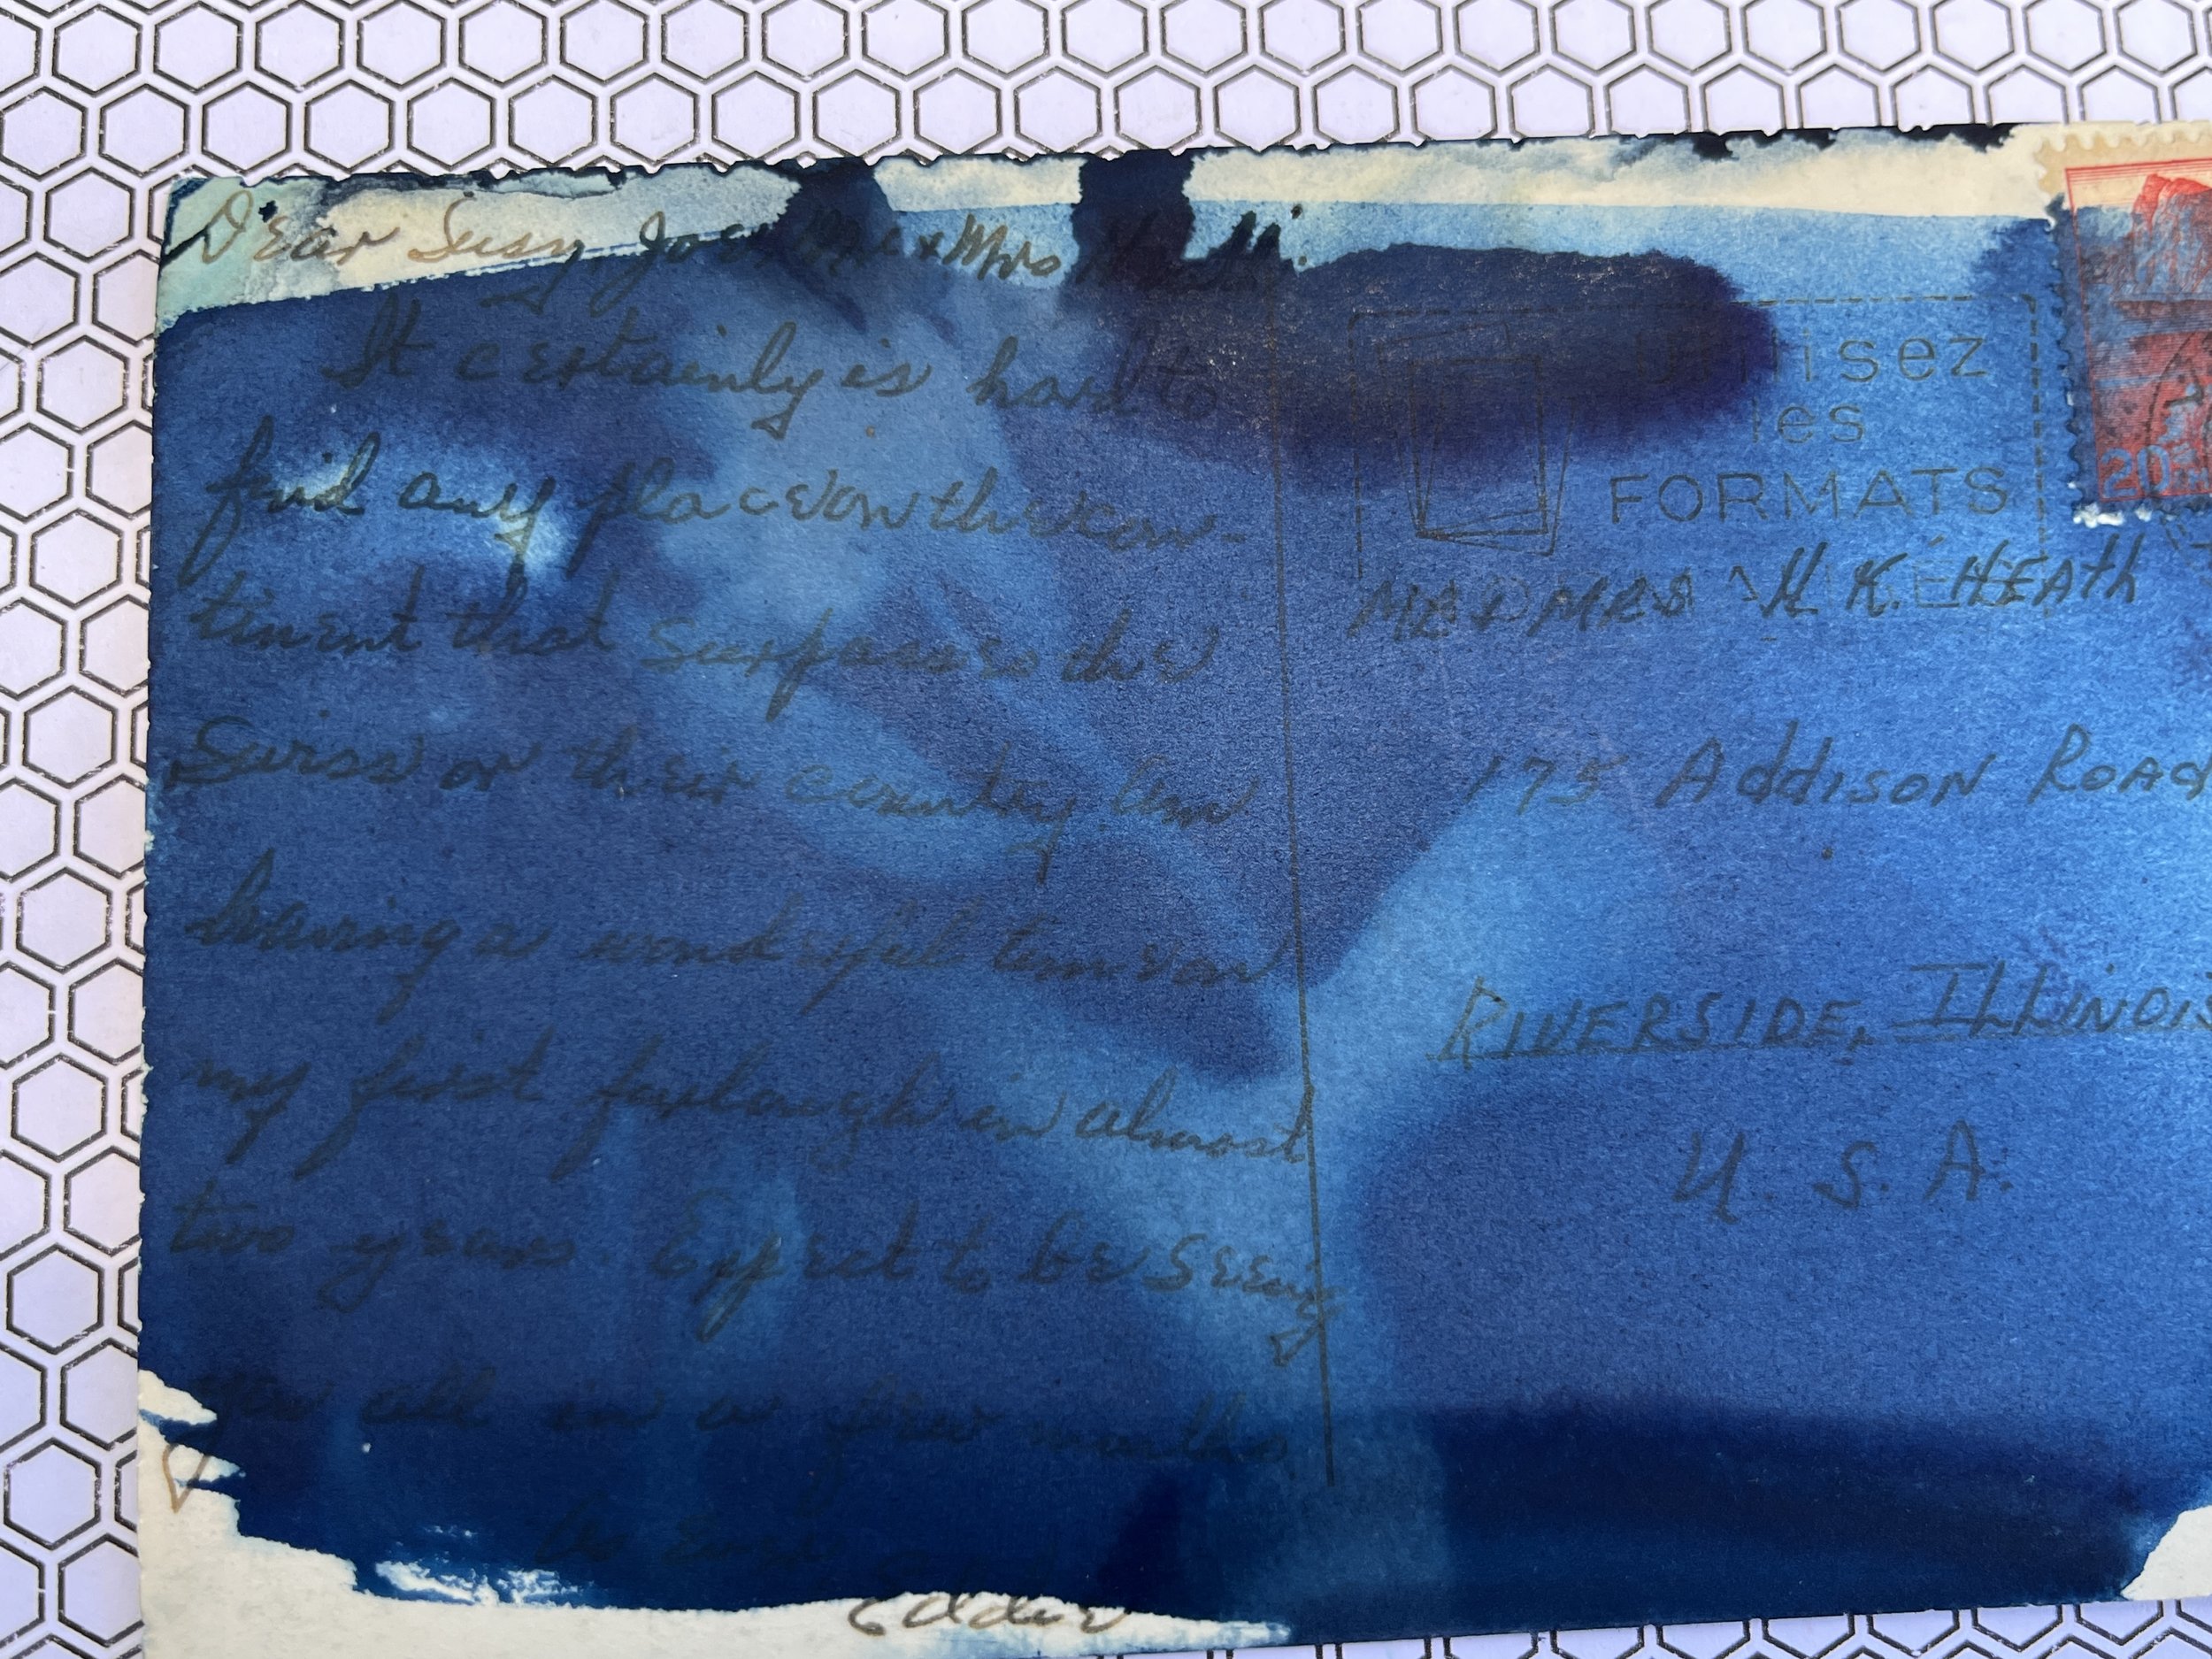 Dear Susy, Joe, Mr + Mrs Heath.
It certainly is hard to
find any place on the con-
tinent that surpasses the
Swiss or their country. Am
having a wonderful time on
my first furlough in almost
two years. Expect to be seeing
you all in a few months.
Eddie
utilisez
les
FORMATS
NORMALISÉS
20
MR & MRS H. K. HEATH
175 ADDISON ROAD
RIVERSIDE, ILLINOIS
U. S. A.